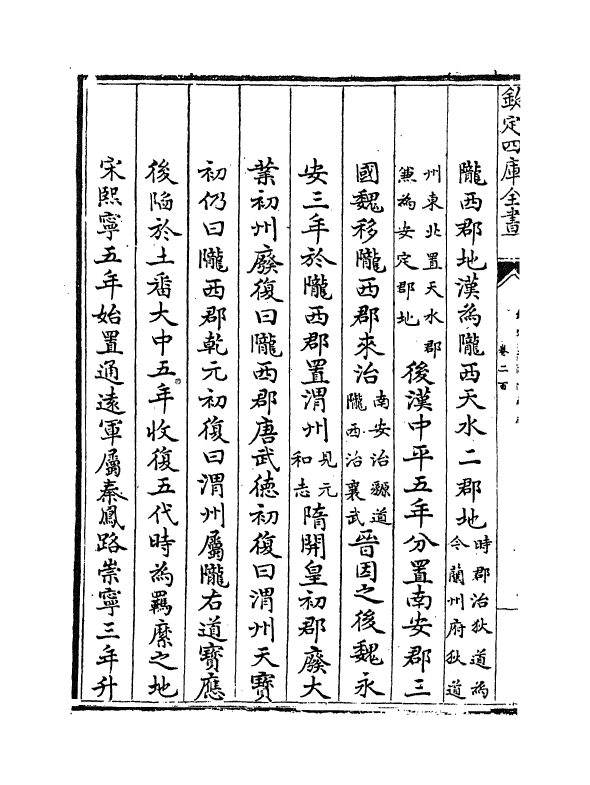 欽定四庫全書
卷二百
隴西郡地漢爲隴西天水二郡地時郡治狄道爲今蘭州府狄道
州東北置天水郡兼爲安定郡地後漢中平五年分置南安郡三
國魏移隴西郡來治南安治䝠道隴西治襄武晉因之後魏永
安三年於隴西郡置渭州見元和志隋開皇初郡廢大
業初州廢復曰隴西郡唐武德初復曰渭州天寶
初仍曰隴西郡乾元初復曰渭州屬隴右道寶應
後陷於土番大中五年收復五代時爲羈縻之地
宋熙寧五年始置通遠軍屬秦鳳路崇寧三年升